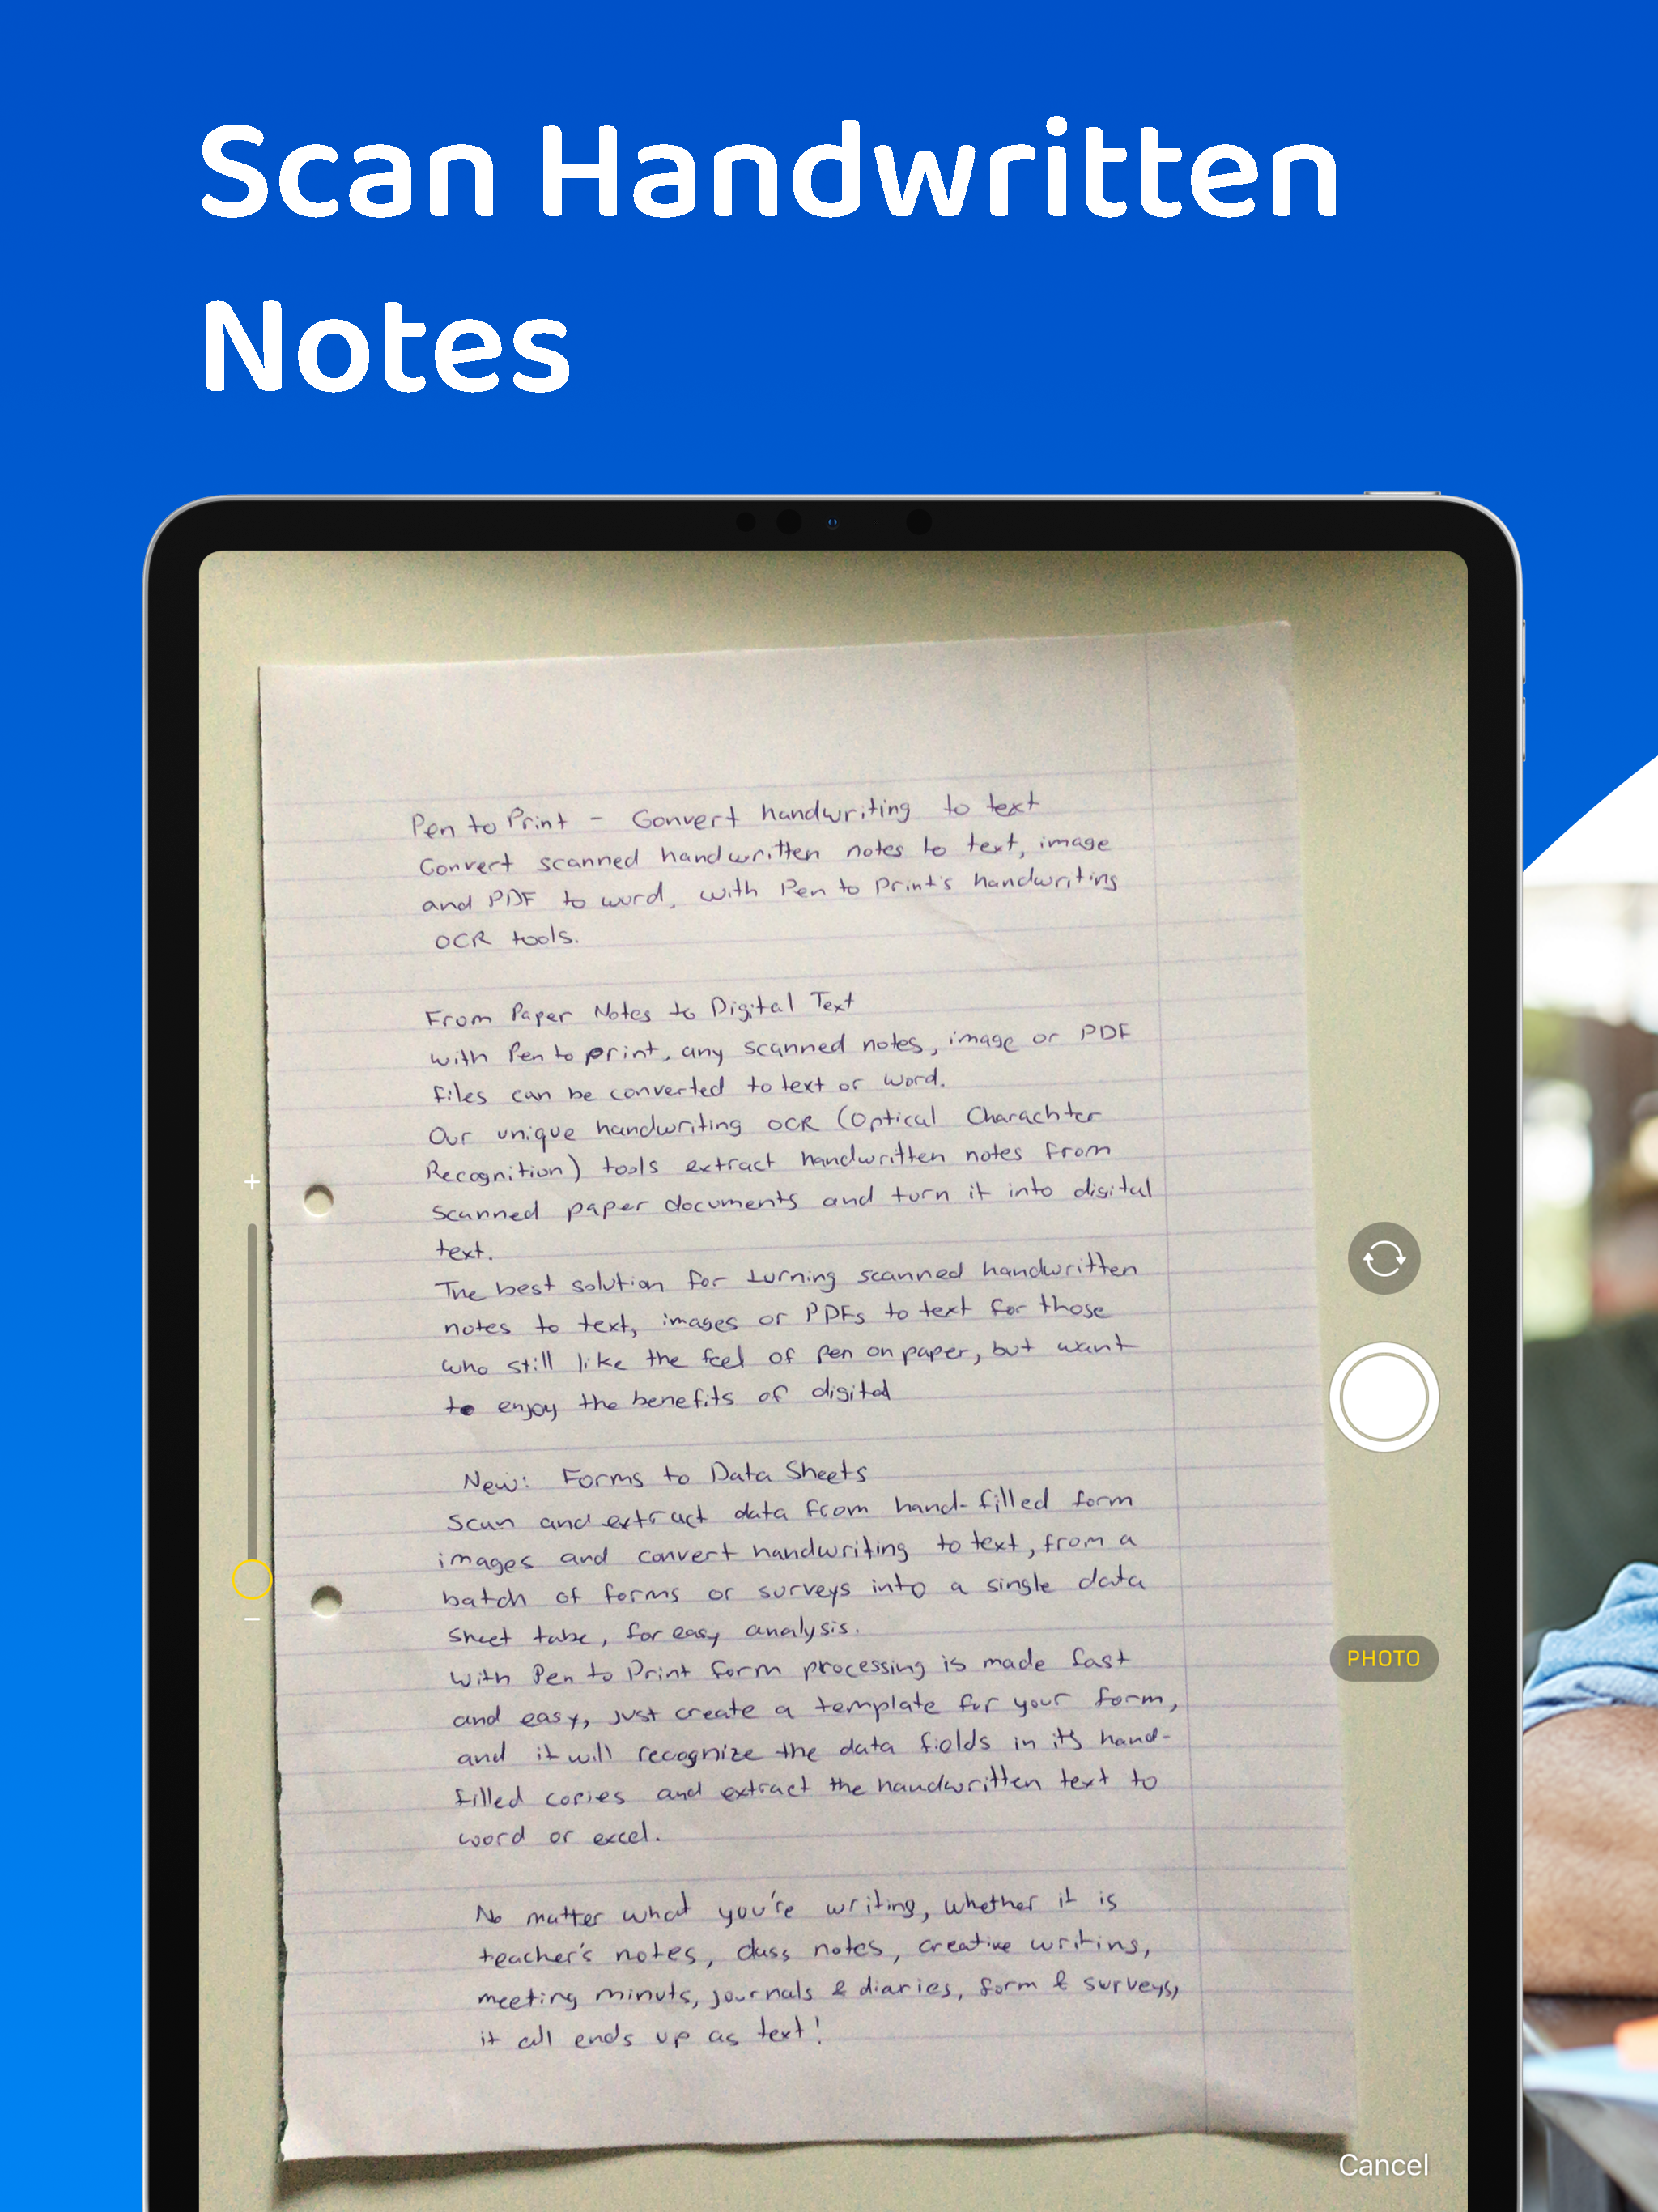 Scan Handwritten
Notes
Pen to Print - Convert handwriting to text
Convert scanned handwritten notes to text, image
and PDF to word, with Pen to Print's handwriting
OCR tools.
From Paper Notes to Digital Text
with Pen to print, any scanned notes, image or PDF
files can be converted to text or word.
Our unique handwriting OCR (Optical Charachter
Recognition) tools extract handwritten notes from
scanned paper documents and turn it into digital
text.
The best solution for turning scanned handwritten
notes to text, images or PDFs to text for those
who still like the feel of pen on paper, but want
to enjoy the benefits of digital
New: Forms to Data Sheets
Scan and extract data from hand-filled form
images and convert handwriting to text, from a
batch of forms or surveys into a single data
sheet tabe, for easy analysis.
With Pen to Print form processing is made fast
and easy, just create a template for your form,
and it will recognize the data fields in its hand-
filled copies and extract the handwritten text to
word or excel.
No matter what you're writing, whether it is
teacher's notes, class notes, creative writing,
meeting minuts, journals & diaries, form & surveys,
it all ends up as text!
PHOTO
Cancel